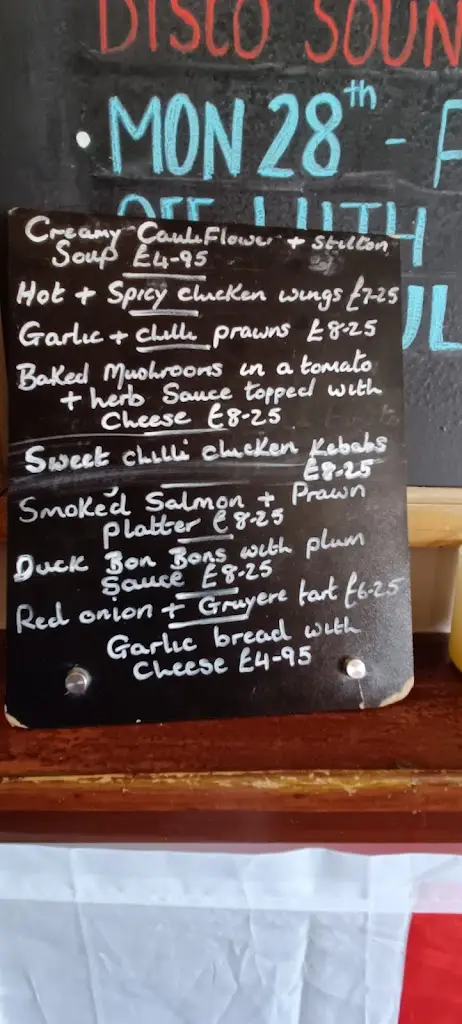 DISCO SOUN
• MON 28th - F
OFF WITH
UL
Creamy Cauliflower + Stilton
Soup £4-95
Hot + Spicy chicken wings £7-25
Garlic + chilli prawns £8-25
Baked Mushrooms in a tomato
+ herb Sauce topped with
Cheese £8-25
Sweet chilli chicken Kebabs
£8-25
Smoked Salmon + Prawn
platter £8-25
Duck Bon Bons with plum
Sauce £8-25
Red onion + Gruyere tart £6-25
Garlic bread with
Cheese £4-95